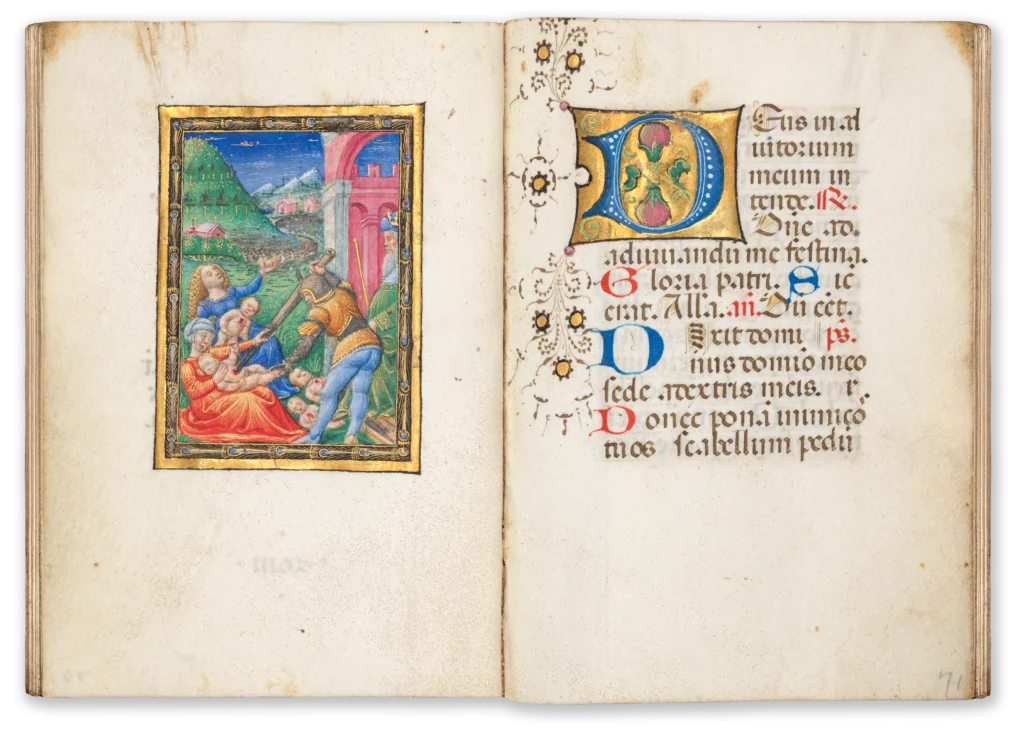 DEus in ad
iutorium
meum in
tende. R.
Dñe ad.
adiuuandū me festina.
Gloria patri. Sic
erat. Alla. añ. Dū eēt.
Dixit domi ps.
nus domīo meo
sede adextris meis.
Donec ponā inimicō
tuos scabellum pedū
71